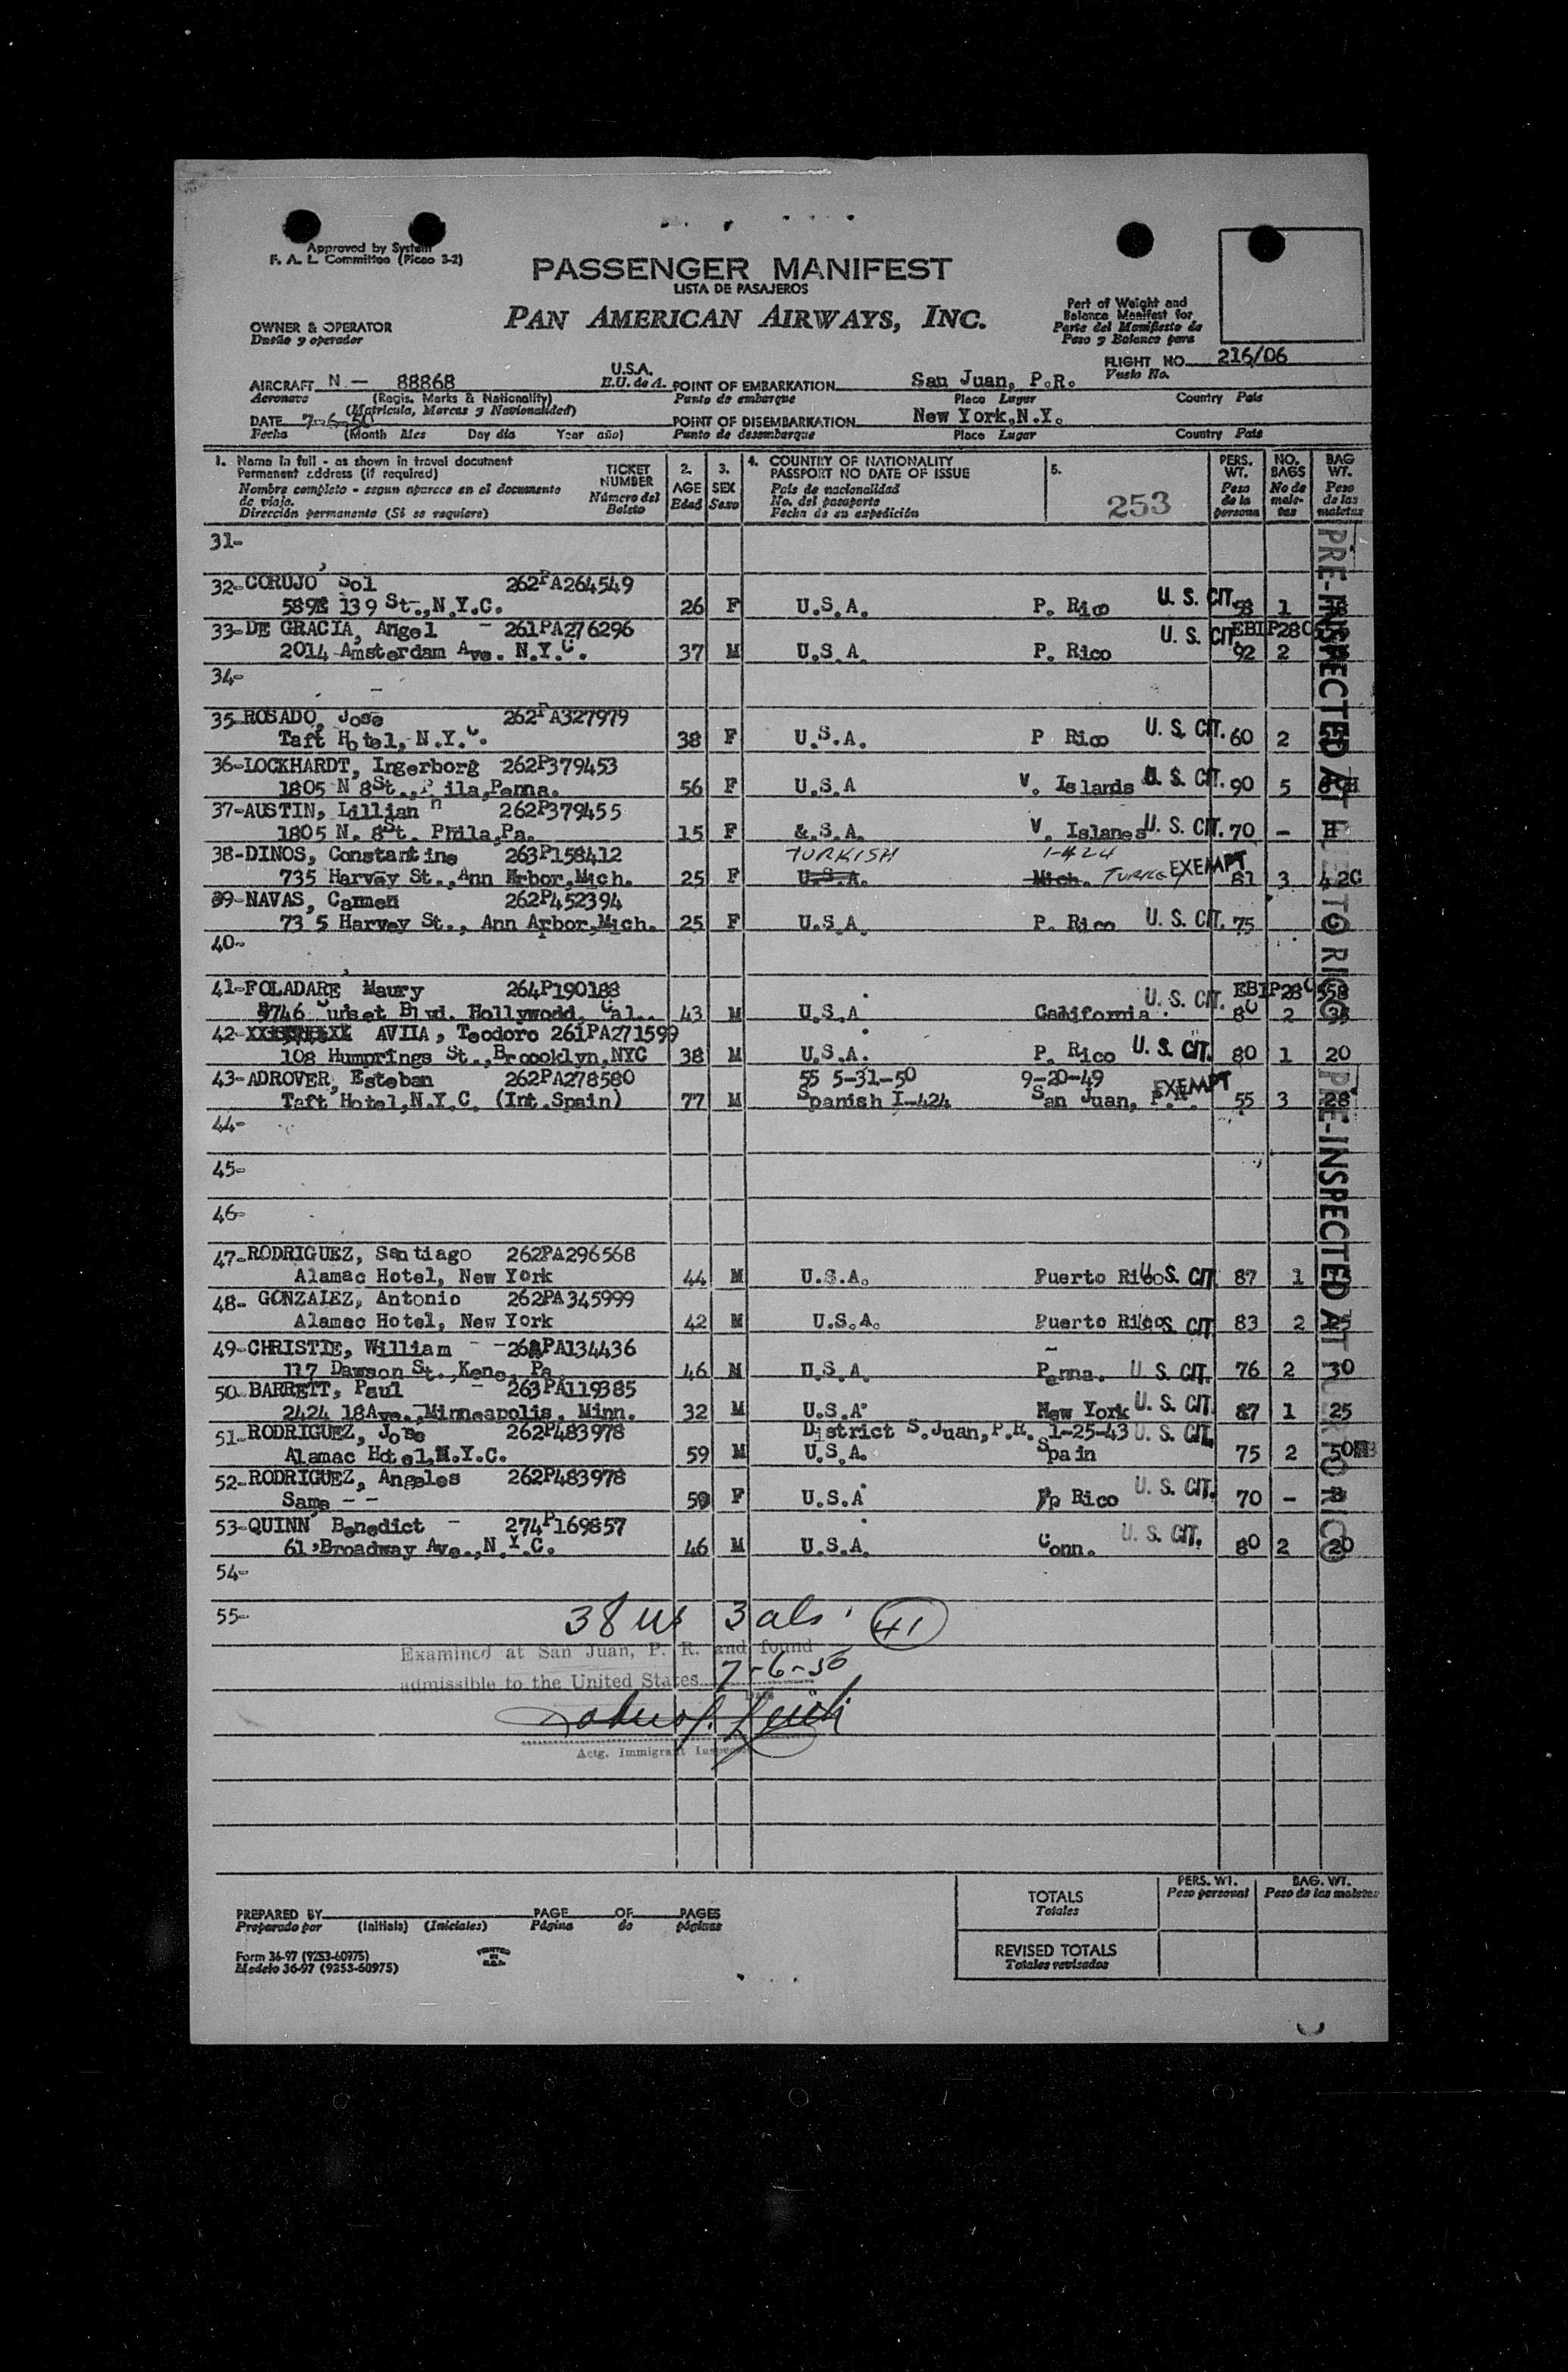 Approved by System
F. A. L. Committee (Picao 3-2)
PASSENGER MANIFEST
LISTA DE PASAJEROS
PAN AMERICAN AIRWAYS, INC.
OWNER & OPERATOR
Dueño y operador
Part of Weight and
Balance Manifest for
Parte del Manifiesto de
Peso y Balance para
FLIGHT NO. 216/06
Vuelo No.
AIRCRAFT N - 88868
Aeronave (Regis. Marks & Nationality)
(Matricula, Marcas y Nacionalidad)
U.S.A.
E.U. de A.
POINT OF EMBARKATION San Juan, P.R.
Punto de embarque Place Lugar Country Pais
DATE 7-6-50
Fecha (Month Mes Day dia Year año)
POINT OF DISEMBARKATION New York,N.Y.
Punto de desembarque Place Lugar Country Pais
1. Name in full - as shown in travel document
Permanent address (if required)
Nombre completo - segun aparece en el documento
de viaje.
Dirección permanente (Si se requiere)
TICKET
NUMBER
Número del
Boleto
2.
AGE
Edad
3.
SEX
Sexo
4. COUNTRY OF NATIONALITY
PASSPORT NO DATE OF ISSUE
Pais de nacionalidad
No. del pasaporte
Fecha de su expedición
5.
253
PERS.
WT.
Peso
de la
persona
NO.
BAGS
No de
male-
tas
BAG
WT.
Peso
de las
maletas
31-
32-CORUJO Sol 262PA264549
589E 139 St.,N.Y.C. 26 F U.S.A. P. Rico U. S. CIT. 1
33-DE GRACIA, Angel - 261PA276296 U. S. CIT EBIP28C
2014 Amsterdam Ave. N.Y.C. 37 M U.S.A. P. Rico 92 2
34-
35-ROSADO, Jose 262PA327979
Taft Hotel, N.Y.C. 38 F U.S.A. P Rico U. S. CIT. 60 2
36-LOCKHARDT, Ingerborg 262P379453
1805 N 8St.,P ila,Penna. 56 F U.S.A V. Islands U. S. CIT. 90 5
37-AUSTIN, Lillian h 262P379455
1805 N. 8St. Phila,Pa. 15 F &.S.A. V. Islanes U. S. CIT. 70 - H
38-DINOS, Constantine 263P158412 TURKISH 1-424
735 Harvey St.,Ann Arbor,Mich. 25 F U.S.A. Mich. TURKEY EXEMPT 81 3 42C
39-NAVAS, Carmen 262P452394
73 5 Harvey St., Ann Arbor,Mich. 25 F U.S.A. P. Rico U. S. CIT. 75 C
40-
41-FOLADARE Maury 264P190188 EBIP28C558
8746 Sunset Blvd. Hollywodd, Cal.. 43 M U.S.A California. U. S. CIT. 80 2 35
42-XXXXXXXXX AVIIA, Teodoro 261PA271599
108 Humprings St.,Broooklyn,NYC 38 M U.S.A. P. Rico U. S. CIT. 80 1 20
43-ADROVER, Esteban 262PA278580 55 5-31-50 9-20-49
Taft Hotel,N.Y.C. (Int.Spain) 77 M Spanish I-424 San Juan, P.R. EXEMPT 55 3 28
44-
45-
46-
47-RODRIGUEZ, Santiago 262PA296568
Alamac Hotel, New York 44 M U.S.A. Puerto Rico U. S. CIT. 87 1
48- GONZAIEZ, Antonio 262PA345999
Alamac Hotel, New York 42 M U.S.A. Puerto Rico U. S. CIT 83 2
49-CHRISTIE, William - PA134436
117 Dawson St.,Kene, Pa. 46 M U.S.A. Penna. U. S. CIT. 76 2 30
50-BARRETT, Paul - 263PA119385
2424 18Ave.,Minneapolis, Minn. 32 M U.S.A. New York U. S. CIT. 87 1 25
51-RODRIGUEZ, Jose 262P483978 District S.Juan,P.R. 1-25-43 U. S. CIT.
Alamac Hotel,N.Y.C. 59 M U.S.A. Spain 75 2 50
52-RODRIGUEZ, Angeles 262P483978
Same - - 50 F U.S.A P Rico U. S. CIT. 70 -
53-QUINN Benedict - 274P169857
61 Broadway Ave.,N.Y.C. 46 M U.S.A. Conn. U. S. CIT. 80 2 20
54-
55-
PRE-INSPECTED AT PUERTO RICO
PRE-INSPECTED AT PUERTO RICO
38 us 3 als. 41
Examined at San Juan, P. R. and found
admissible to the United States 7-6-50
Date
Actg. Immigrant Inspector
TOTALS
Totales
PERS. WT.
Peso personal
BAG. WT.
Peso de las maletas
REVISED TOTALS
Totales revisados
PREPARED BY PAGE OF PAGES
Preparado por (Initials) (Iniciales) Página de páginas
Form 36-97 (9253-60975)
Modelo 36-97 (9253-60975)
PRINTED
IN
U.S.A.